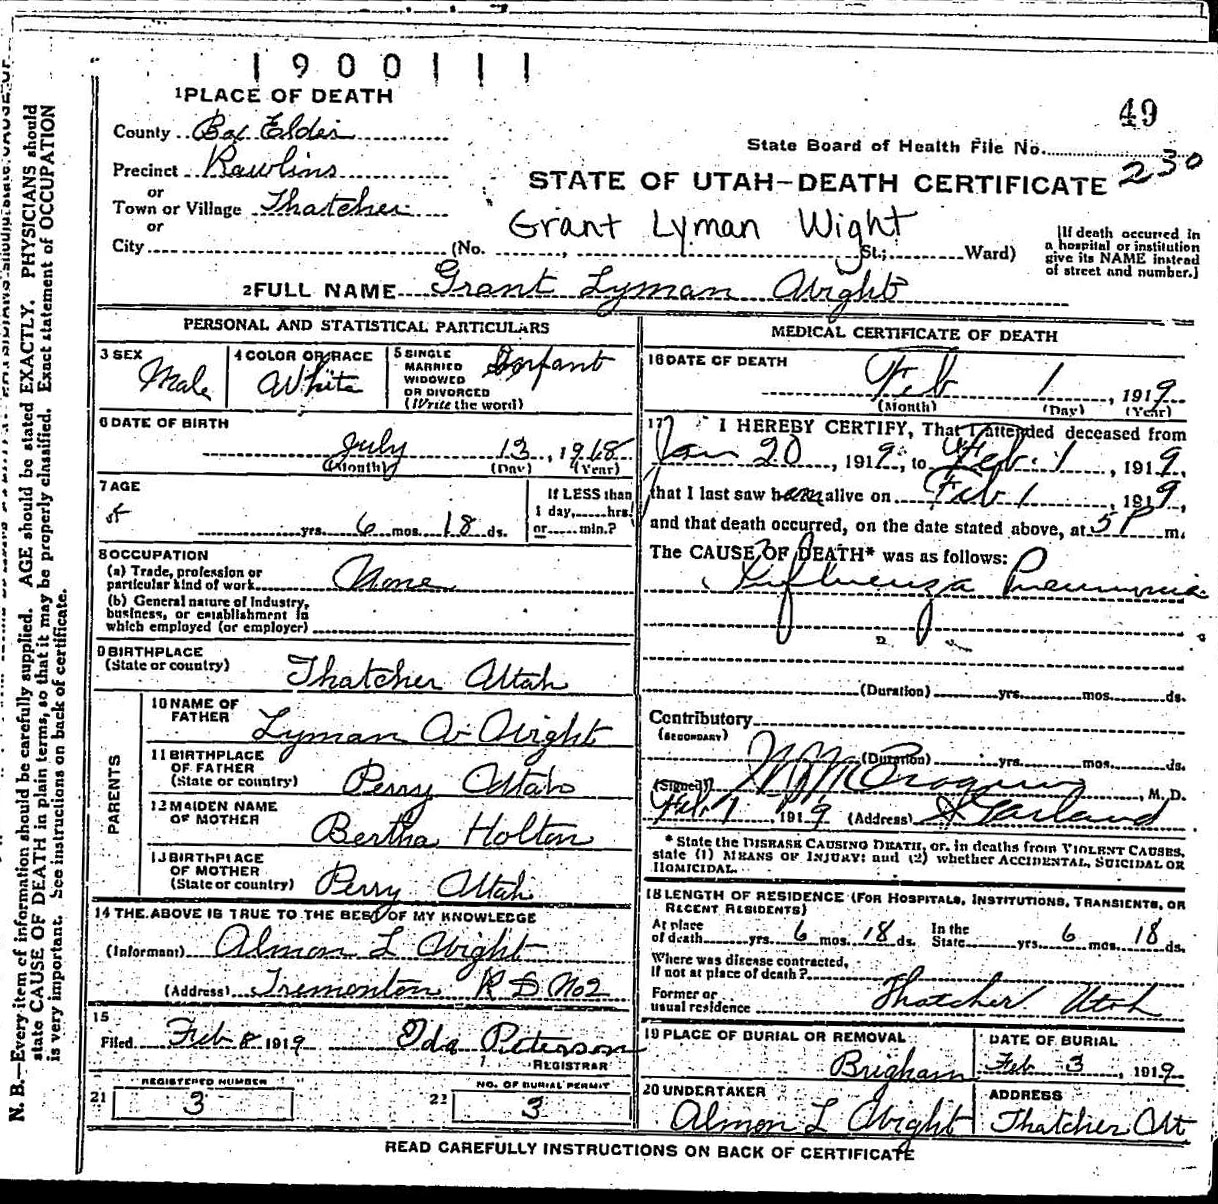 1900111
49
1 PLACE OF DEATH
County Box Elder
State Board of Health File No. 230
Precinct Rawlins
or
Town or Village Thatcher
STATE OF UTAH-DEATH CERTIFICATE
or
Grant Lyman Wight
City (No. , St.; Ward)
[If death occurred in
a hospital or institution
give its NAME instead
of street and number.]
2 FULL NAME Grant Lyman Wight
PERSONAL AND STATISTICAL PARTICULARS
3 SEX
Male
4 COLOR OR RACE
White
5 SINGLE
MARRIED
WIDOWED
OR DIVORCED
(Write the word)
Infant
6 DATE OF BIRTH
July 13, 1918
(Month) (Day) (Year)
7 AGE
yrs. 6 mos. 18 ds.
If LESS than
1 day, hrs.
or min.?
8 OCCUPATION
(a) Trade, profession or
particular kind of work None
(b) General nature of Industry,
business, or establishment in
which employed (or employer)
9 BIRTHPLACE
(State or country) Thatcher Utah
PARENTS
10 NAME OF
FATHER Lyman W Wight
11 BIRTHPLACE
OF FATHER
(State or country) Perry Utah
12 MAIDEN NAME
OF MOTHER Bertha Holton
13 BIRTHPLACE
OF MOTHER
(State or country) Perry Utah
14 THE ABOVE IS TRUE TO THE BEST OF MY KNOWLEDGE
(Informant) Almon L Wight
(Address) Tremonton R D No 2
15
Filed Feb 8 1919 Ida Peterson
REGISTRAR
21 REGISTERED NUMBER
3
22 NO. OF BURIAL PERMIT
3
MEDICAL CERTIFICATE OF DEATH
16 DATE OF DEATH
Feb 1, 1919
(Month) (Day) (Year)
17 I HEREBY CERTIFY, That I attended deceased from
Jan 20, 1919, to Feb. 1, 1919,
that I last saw him alive on Feb 1 1919,
and that death occurred, on the date stated above, at 5 P m.
The CAUSE OF DEATH* was as follows:
Influenza Pneumonia
(Duration) yrs. mos. ds.
Contributory
(SECONDARY)
(Duration) yrs. mos. ds.
(Signed) , M. D.
Feb 7, 1919 (Address) Garland
* State the DISEASE CAUSING DEATH, or, in deaths from VIOLENT CAUSES,
state (1) MEANS OF INJURY; and (2) whether ACCIDENTAL, SUICIDAL OR
HOMICIDAL.
18 LENGTH OF RESIDENCE (FOR HOSPITALS, INSTITUTIONS, TRANSIENTS, OR
RECENT RESIDENTS)
At place
of death yrs. 6 mos. 18 ds. In the
State yrs. 6 mos. 18 ds.
Where was disease contracted,
If not at place of death?
Former or
usual residence Thatcher Utah
19 PLACE OF BURIAL OR REMOVAL
Brigham
DATE OF BURIAL
Feb 3, 1919
20 UNDERTAKER
Almon L Wight
ADDRESS
Thatcher Ut
READ CAREFULLY INSTRUCTIONS ON BACK OF CERTIFICATE
N. B.—Every item of information should be carefully supplied. AGE should be stated EXACTLY. PHYSICIANS should
state CAUSE OF DEATH in plain terms, so that it may be properly classified. Exact statement of OCCUPATION
is very important. See instructions on back of certificate.